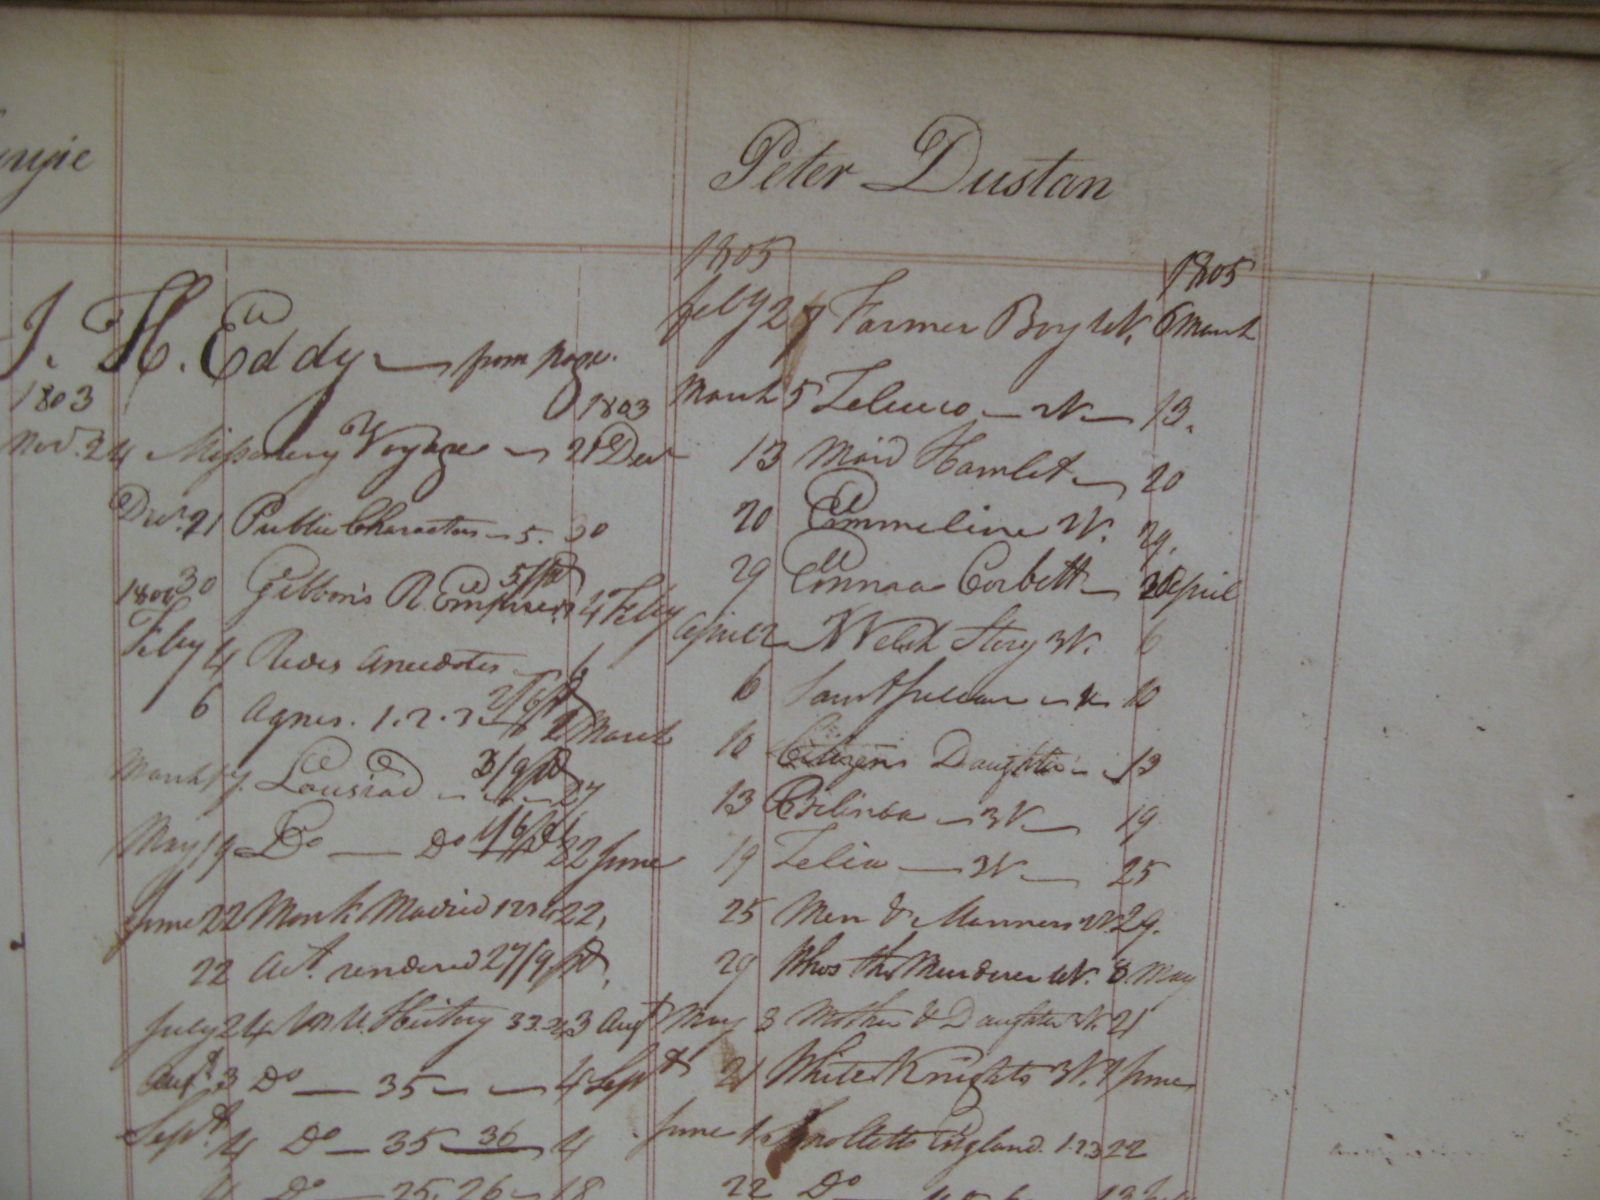 Peter Dustan
J. H. Eddy from page.
1803 1803
Nov. 24 Missionary Voyage 21 Decr
Decr. 21 Public Characters 5. 30
30 Gibbon's R. Empire 5/ pd 4 Feby
1804
Feby 4 Anecdotes 6
6 Agnes. 1.2.3 2/6 pd March
March 17 Lousiad 3/9 pd 27
May 19 Do Do 1/6 pd 22 June
June 22 Monk Madrid 22,
22 Act. rendered 27/9 pd,
July 24 M U. History 33. 3 Augt
Augt. 3 Do 35 4 Sept
Sept. 4 Do 35 36 4
Do 25. 26 18
1805 1805
feby 27 Farmer Boy W. 6 March
March 5 Zeluco W 13.
13 Maid Hamlet 20
20 Emmeline W. 29.
29 Emma Corbett April
April 2 Welch Story 3V. 6
6 Saint Julian 10
10 Citizens Daughter 13
13 Belinda 3V 19
19 Zelia 3V 25
25 Men & Manners 29.
29 the Murderer W. 3 May
May 3 Mother & Daughter 21
21 White Knights 3V. 7 June
June Smolletts England. 1.2.3 22
22 Do